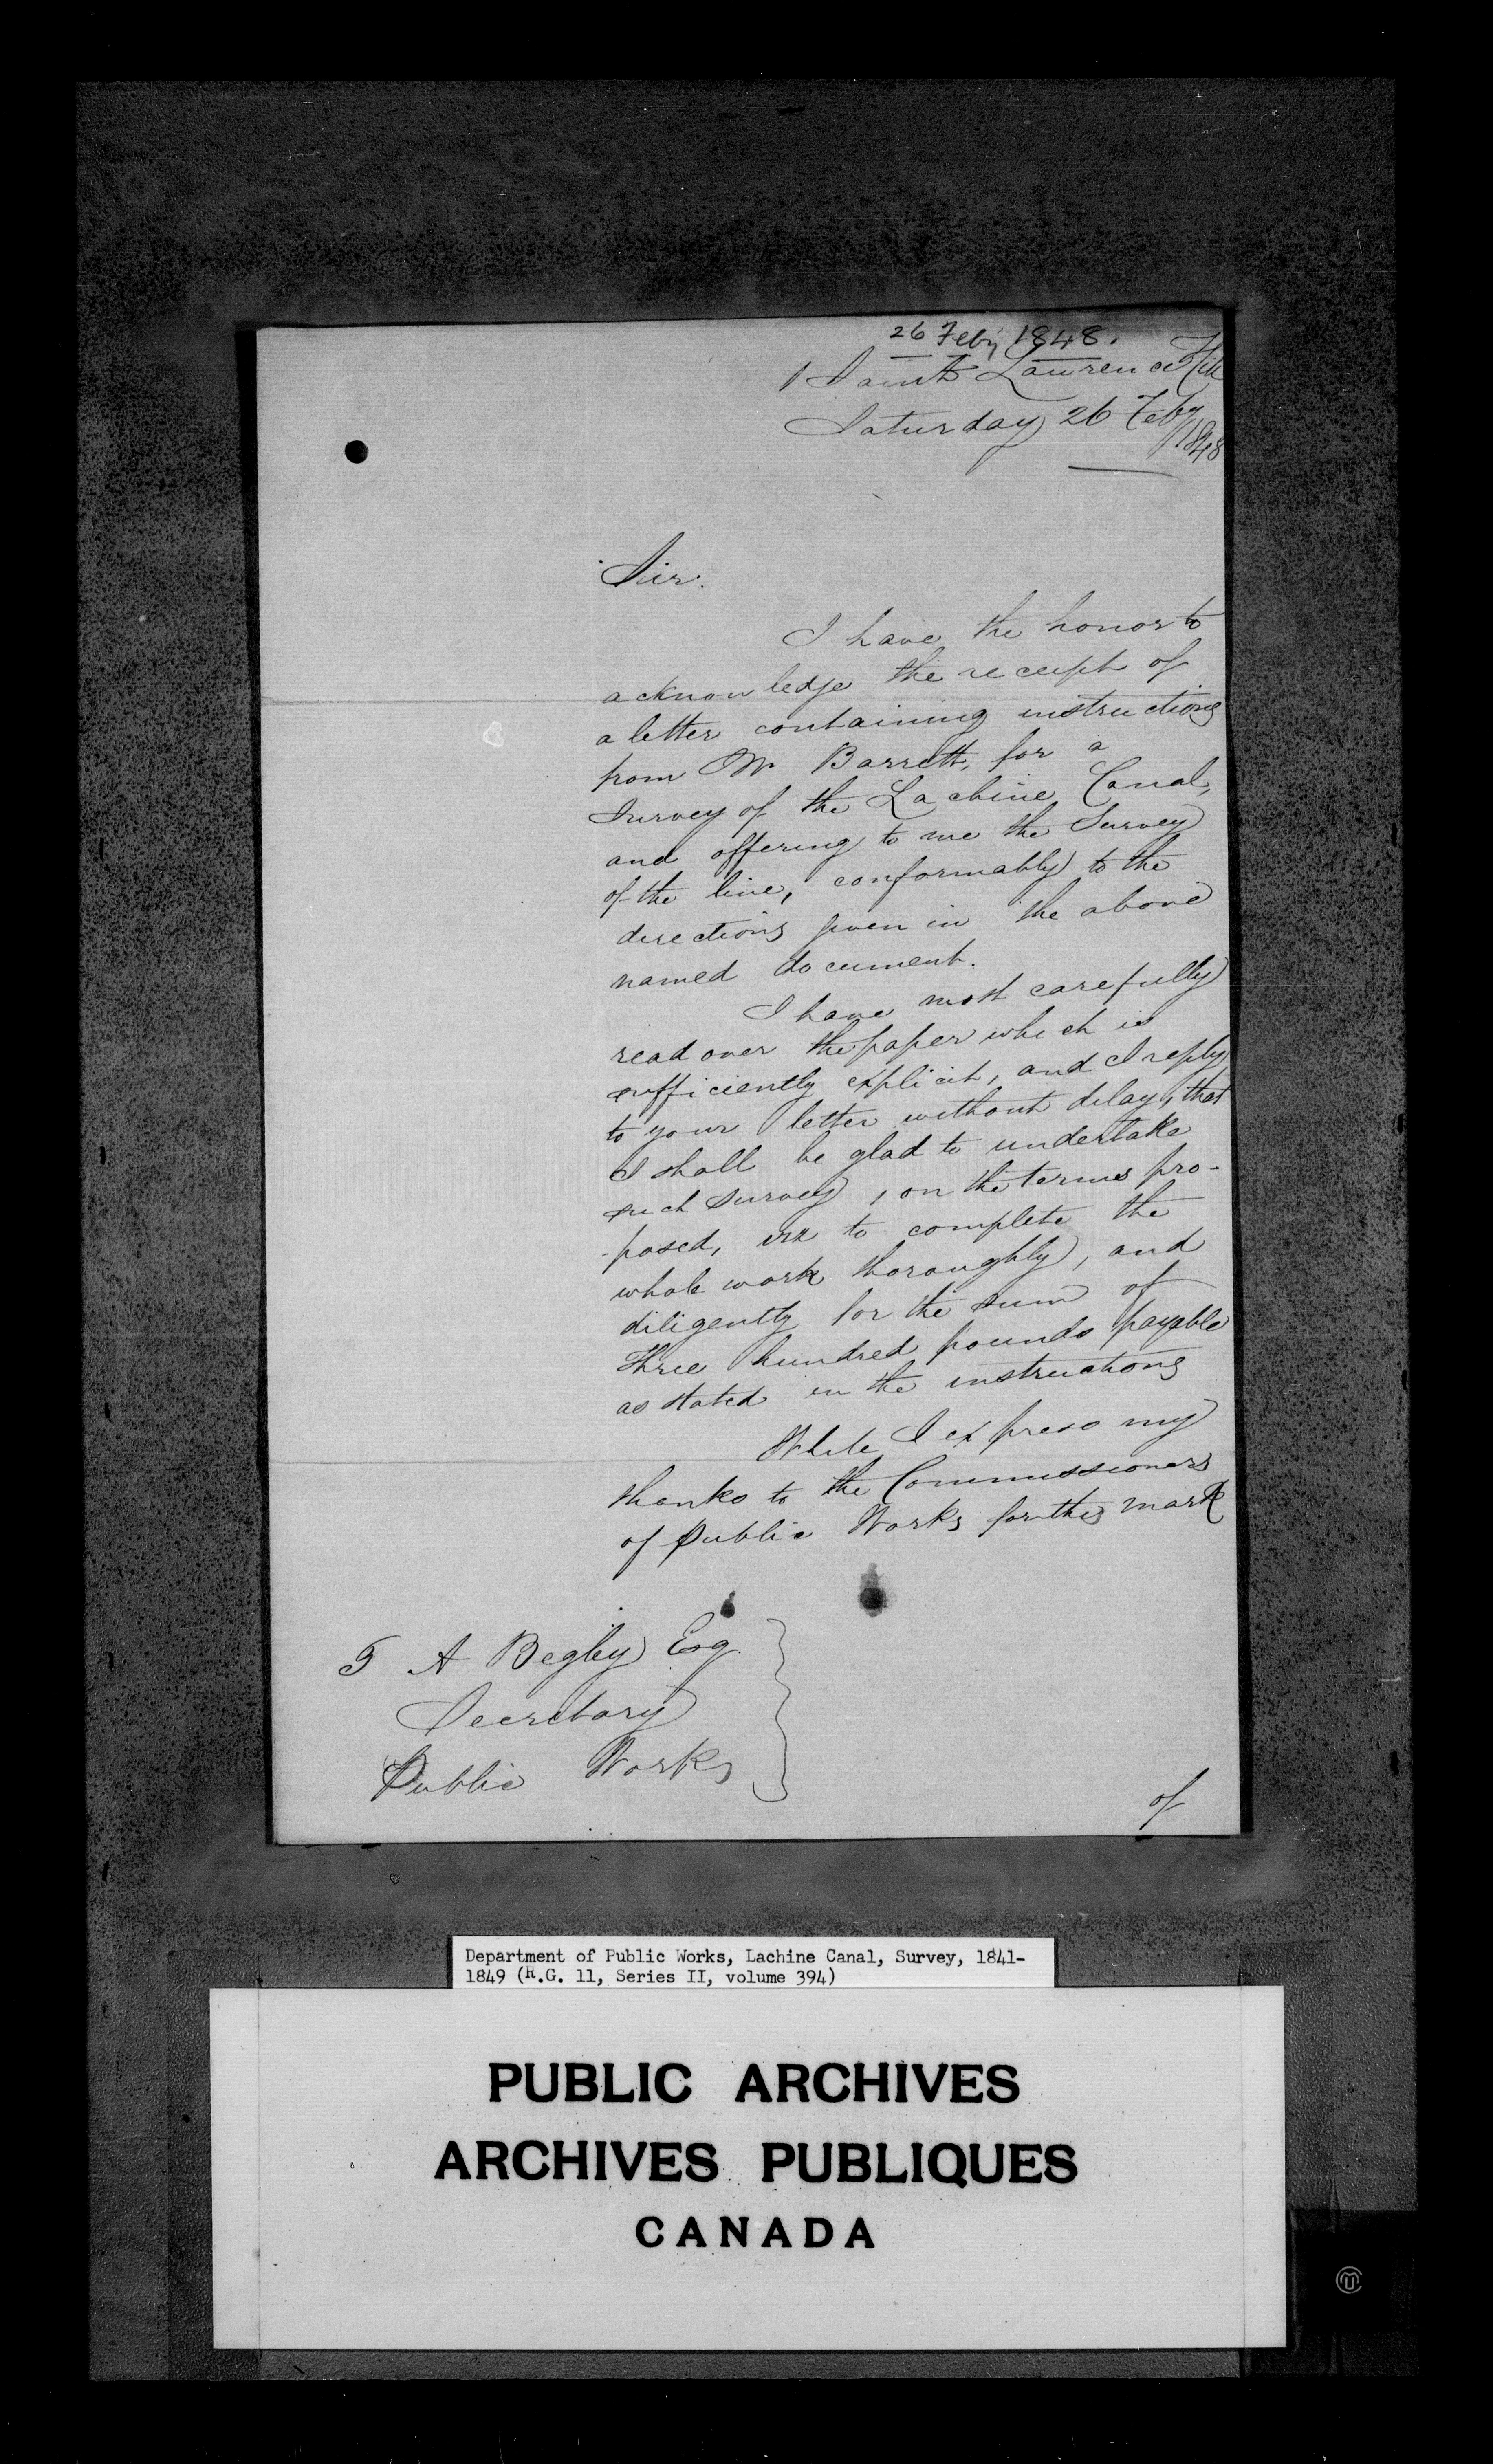 26 Feby 1848.
1 Saint Lawrence Hill
Saturday 26 Feby
1848
Sir.
I have the honor to
acknowledge the receipt of
a letter containing instructions
from Mr Barrett, for a
Survey of the Lachine Canal,
and offering to me the Survey
of the line, conformably to the
directions given in the above
named document.
I have most carefully
read over the paper which is
sufficiently explicit, and I reply
to your letter without delay, that
I shall be glad to undertake
such survey, on the terms pro-
-posed, viz to complete the
whole work thoroughly, and
diligently for the sum of
Three hundred pounds, payable
as stated in the instructions
While I express my
thanks to the Commissioners
of Public Works for this mark
T A Begley Esq
Secretary
Public Works
of
Department of Public Works, Lachine Canal, Survey, 1841-
1849 (R.G. 11, Series II, volume 394)
PUBLIC ARCHIVES
ARCHIVES PUBLIQUES
CANADA